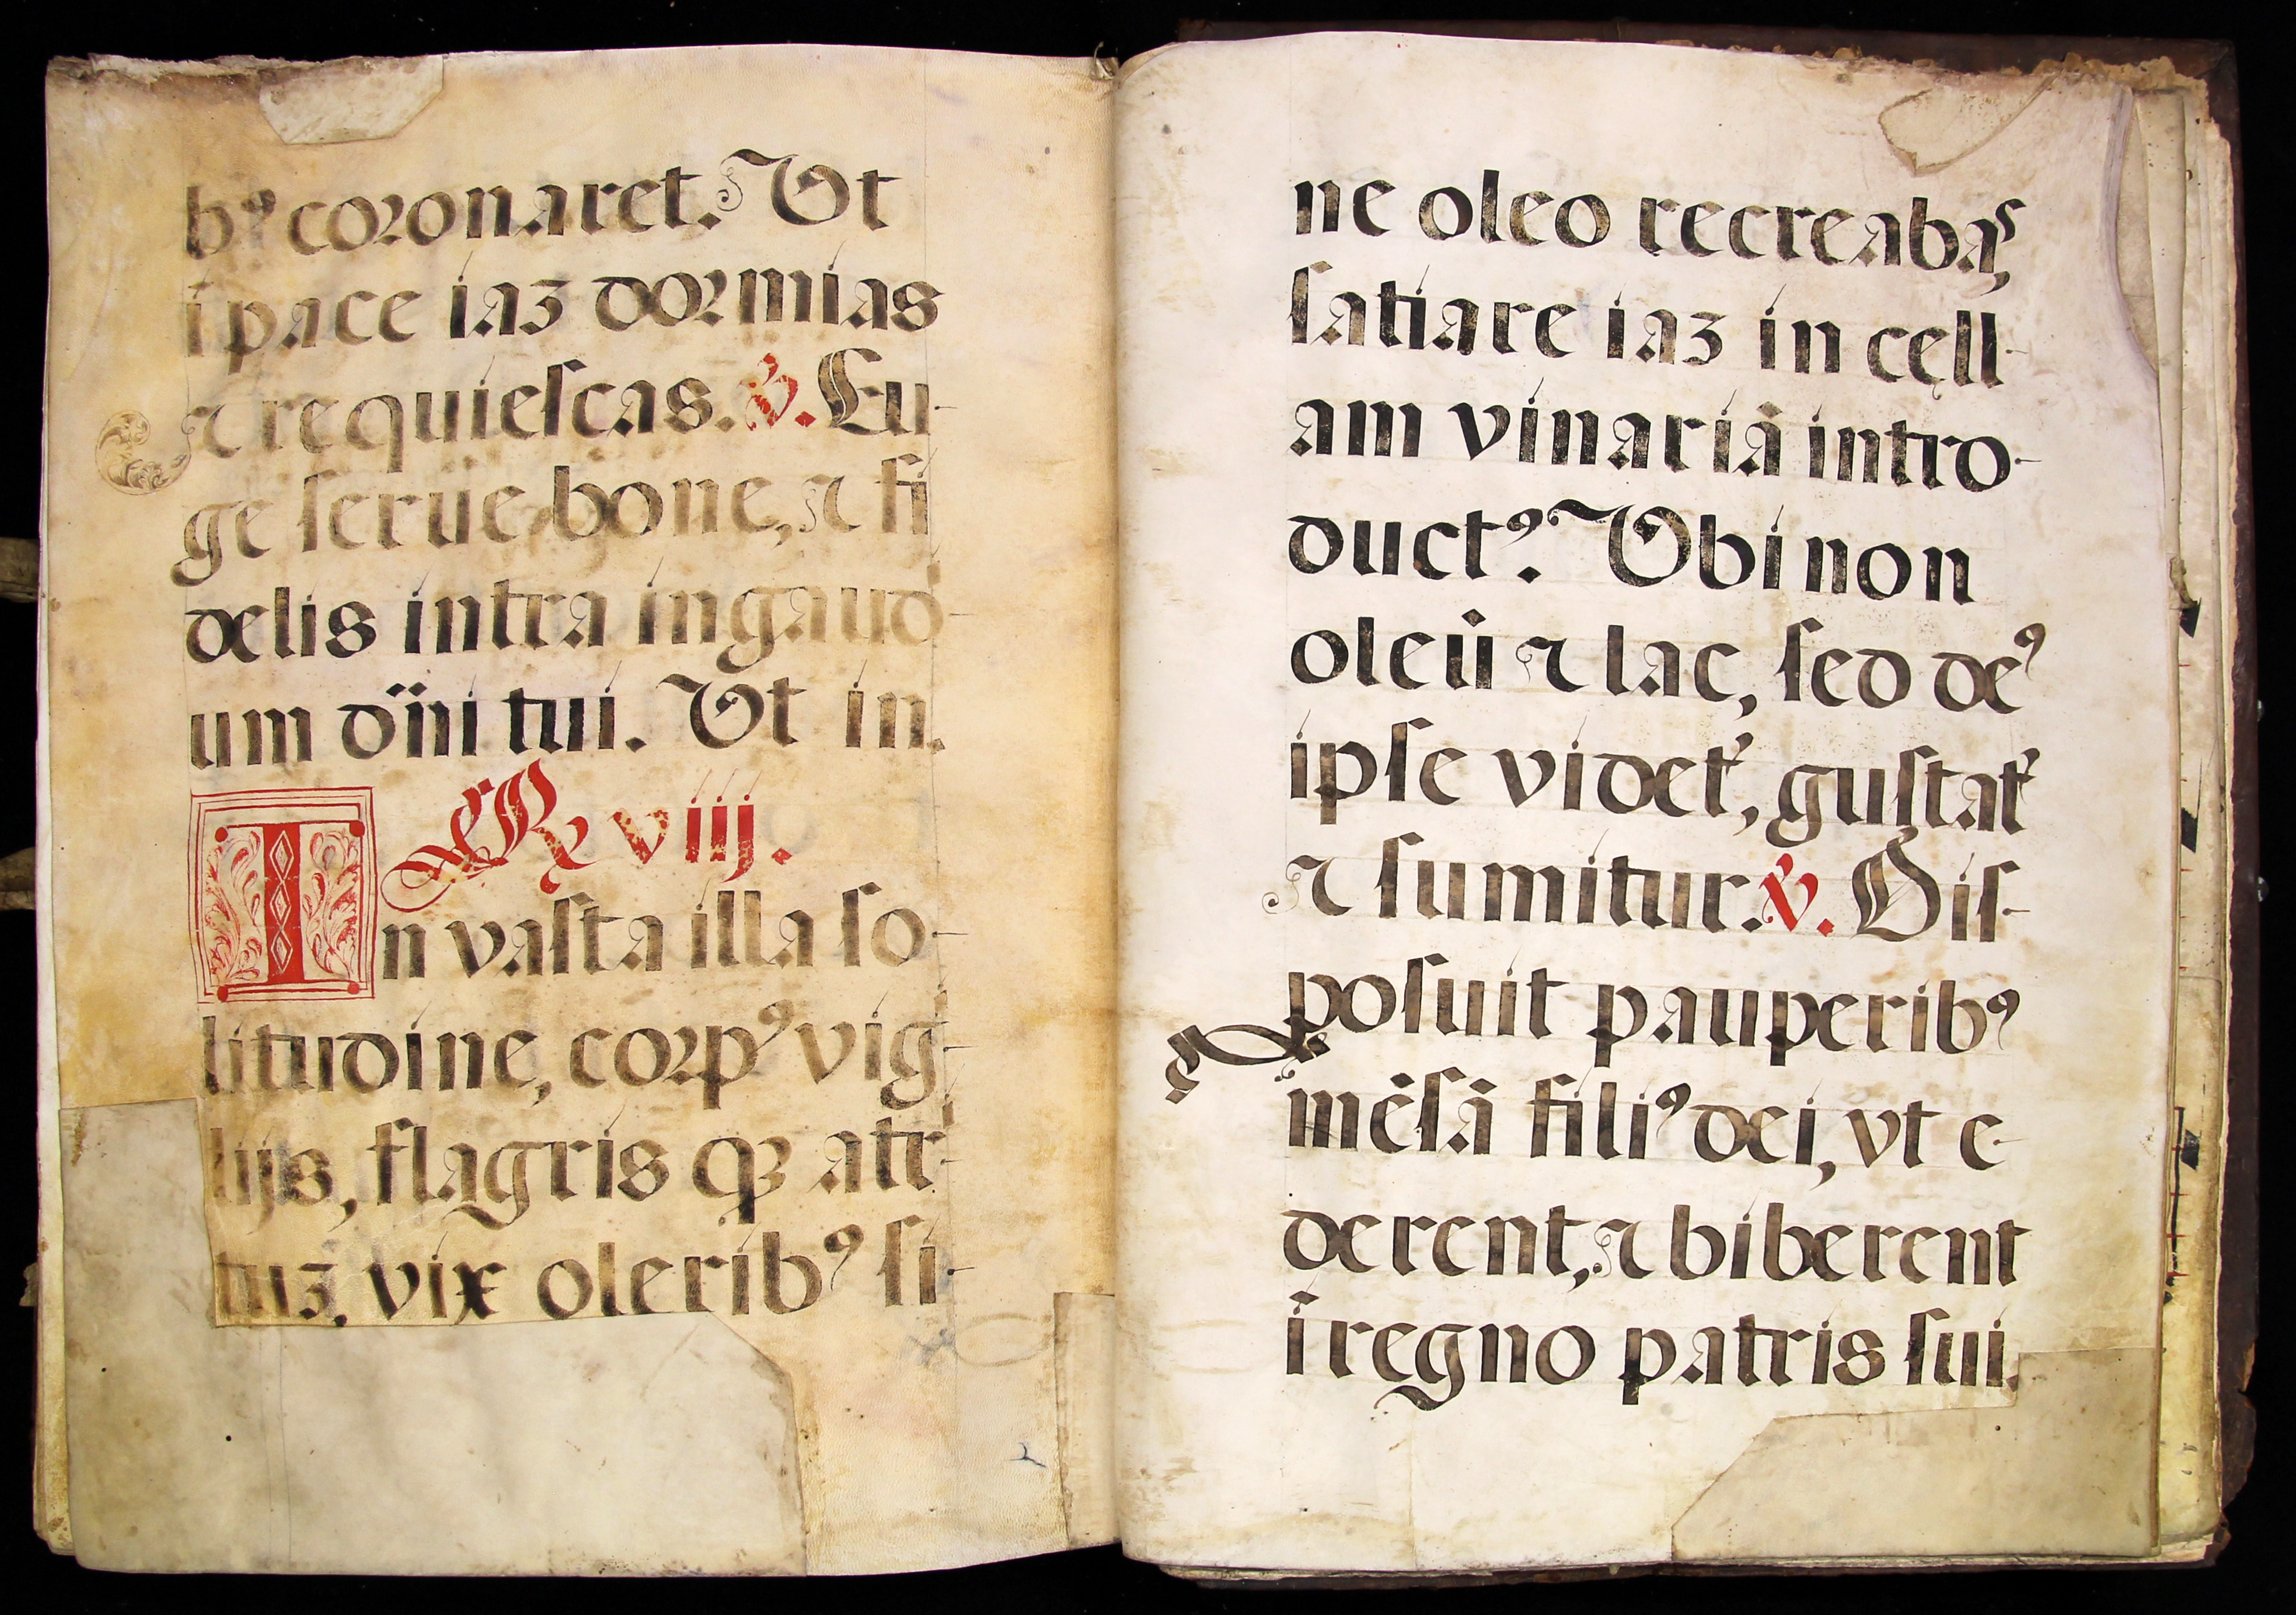 bꝰ coronaret. Ut
ī pace iaʒ dormias
⁊ requiescas. ℣. Eu-
ge serue bone, ⁊ fi
delis intra in gaud-
um dn̄i tui. Ut in.
℟ viij.
In vasta illa so-
litudine, corpꝰ vigi-
lijs, flagris qꝫ attri-
tuʒ, vix oleribꝰ si-
ne oleo recreabas,
satiare iaʒ in cęll-
am vinariā intro-
ductꝰ. Ubi non
oleū ⁊ lac, sed deꝰ
ipse videt᷑, gustat᷑
⁊ sumitur. ℣. Dis-
posuit pauperibꝰ
mēsā filiꝰ dei, vt e-
derent, ⁊ biberent
ī regno patris sui.